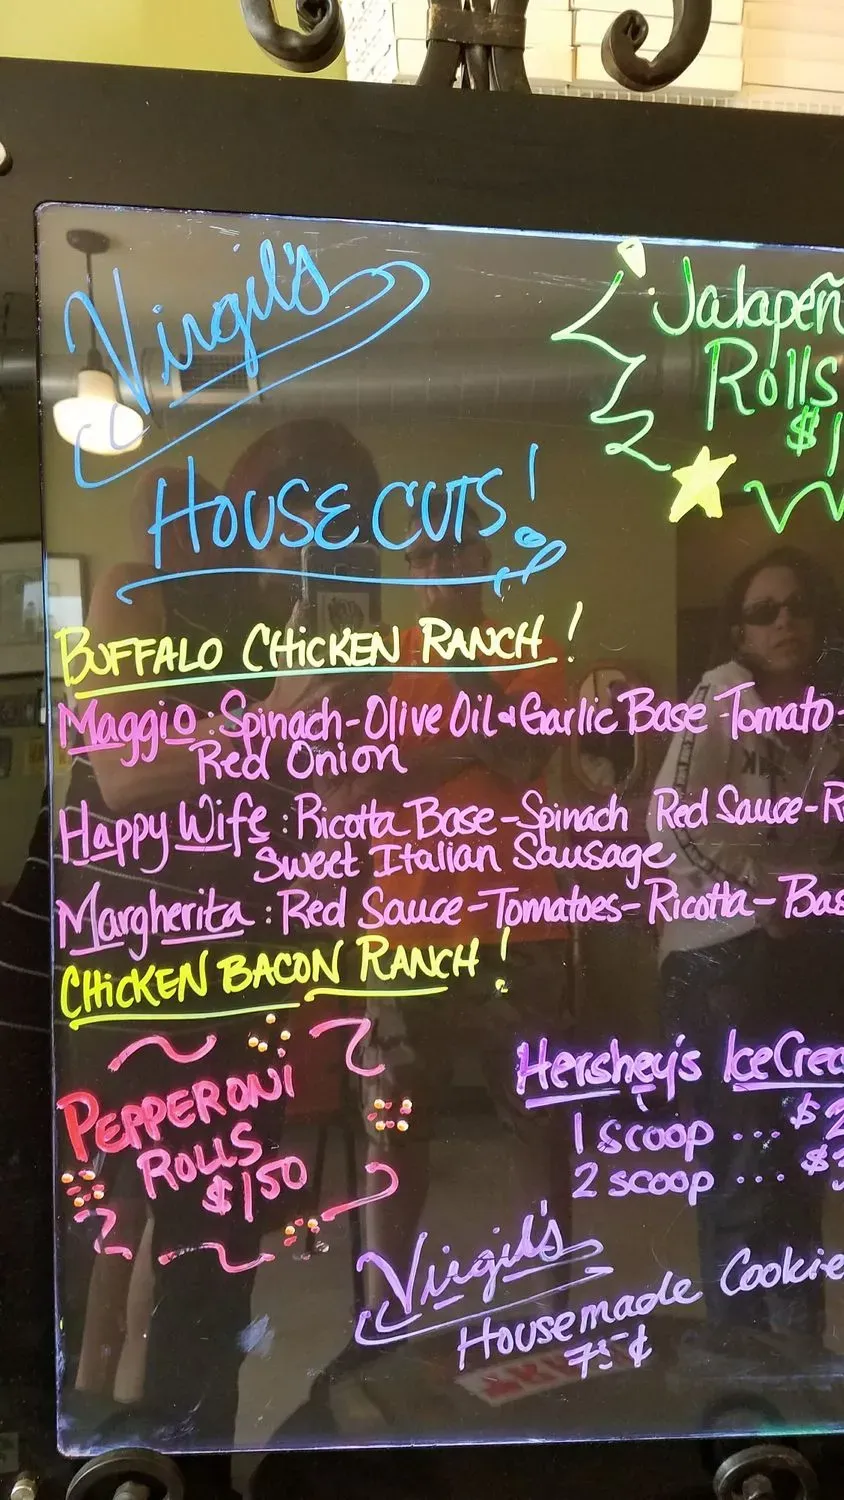 Virgil's
HOUSE CUTS!
Jalapeñ
Rolls
$1
BUFFALO CHICKEN RANCH!
Maggio: Spinach-Olive Oil & Garlic Base-Tomato-
Red Onion
Happy Wife: Ricotta Base-Spinach Red Sauce-R
Sweet Italian Sausage
Margherita: Red Sauce-Tomatoes-Ricotta-Bas
CHICKEN BACON RANCH!
PEPPERONI
ROLLS
$1.50
Hershey's Ice Crea
1 scoop ... $2
2 scoop ... $3
Virgil's
Housemade Cookie
75¢